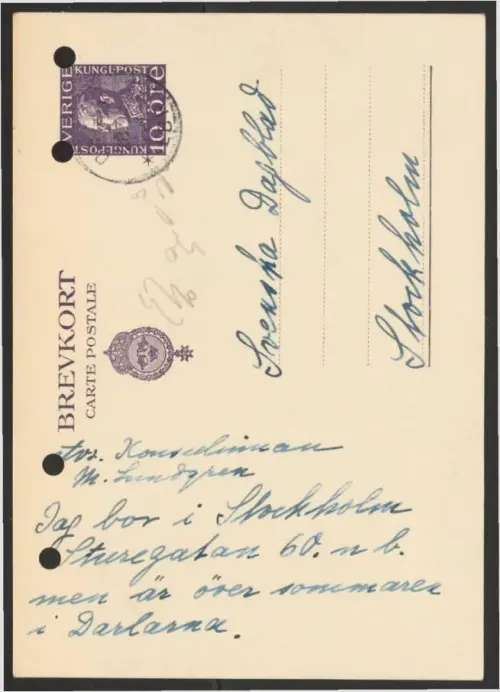 SVERIGE
KUNGL·POST
10 öre
KUNGL·POST
BREVKORT
CARTE POSTALE
Svenska Dagblad
Stockholm
M. Lundgren
Jag bor i Stockholm
Sturegatan 60. n b.
men är över sommaren
i Darlarna.